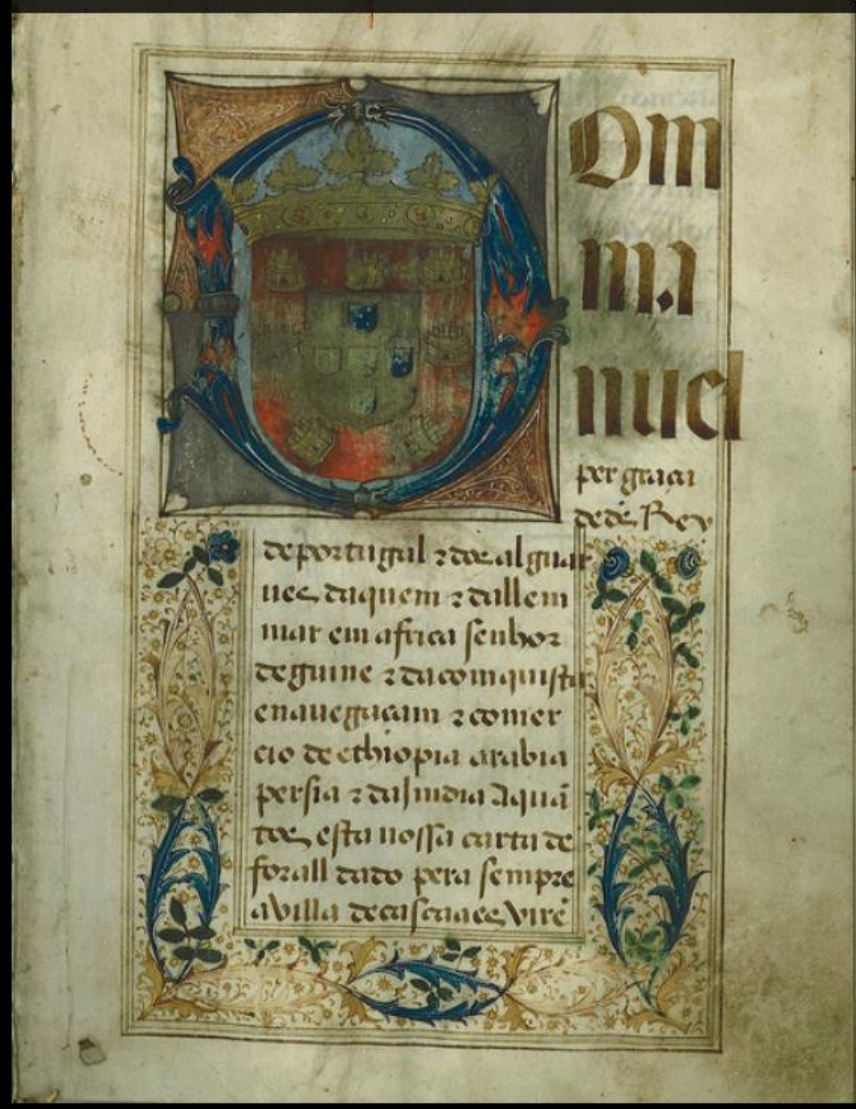 Dom
ma
nuel
per graça
de ds Rey
de portugal ⁊ dos alguar
ues daquem ⁊ dallem
mar em africa senhor
de guine ⁊ da comquista
enauegaçam ⁊ comer
cio de ethiopia arabia
persia ⁊ da Jndia Aquã
tos esta nossa carta de
forall dado pera sempre
a villa de cascaaes virẽ